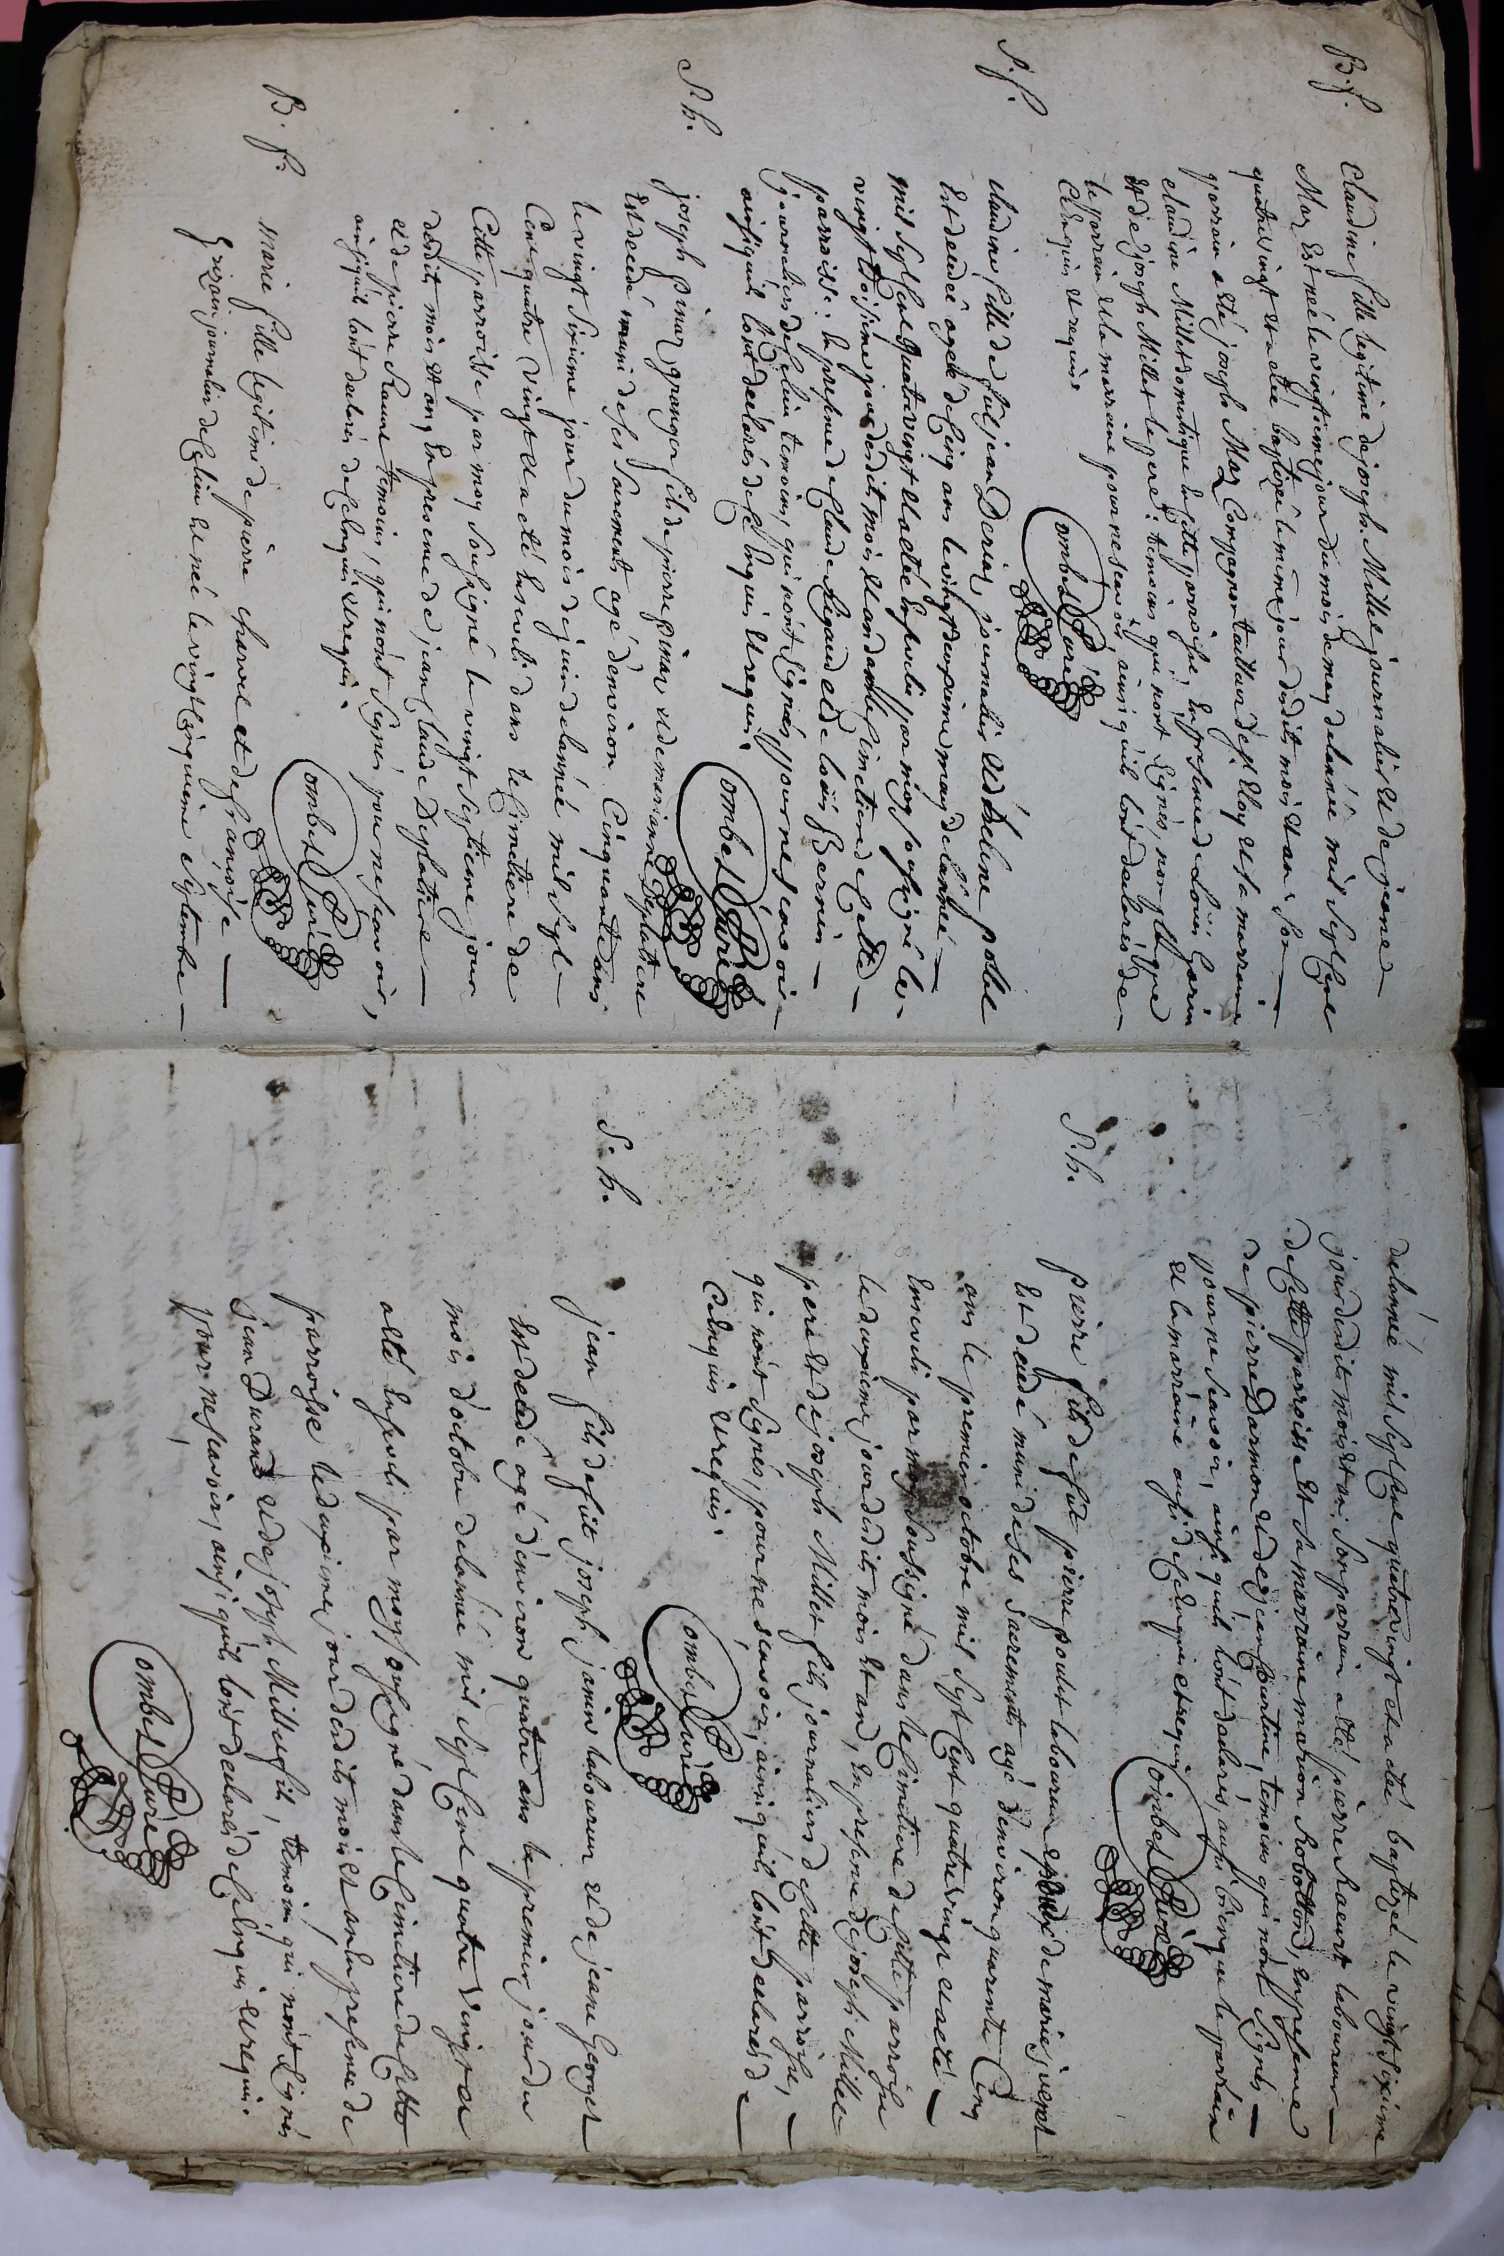 B. f.
Claudine fille legitime de joseph Millet journalier et de jeanne
Maz Est née le vingtieme jour du mois de may de lannée mil sept Cent
quatre vingt et a eté baptizée le même jour dudit mois et an : Son
parrain a eté joseph Maz Compagnon tailleur et sa marraine
claudine Millet domestique En cette parroisse, En presence de Louis Garin
et de joseph Millet le pere : temoins qui n'ont signés, non plus que
le parrain et la marraine pour ne scavoir ainsi quils l'ont declarés de
Ce Enquis et requis
Combes Curé
S. f.
claudine fille de feu jean Deriaz, journalier et d'helene
Est decedée agée de Cinq ans le vingt deuxieme may de lannée
mil sept Cent quatre vingt et a eté Ensevelie par moy sousigné le
vingt troisieme jour dudit mois et an dans le Cimetiere de Cette
parroisse : En presence de Claude Rigaud et de Louis Bernin
journaliers de Celieu temoins, qui n'ont signés, pour ne scavoir
ainsi quils l'ont declarés de Ce Enquis et requis.
Combes Curé
S. h.
joseph pinaz granger fils de pierre pinaz et de marianne Deplatiere
Est decedé muni de ses Sacrements agé denviron Cinquante ans
le vingt Sixieme jour du mois de juin de lannée mil Sept
Cent quatre vingt et a eté Enseveli dans le Cimetiere de
Cette parroisse par moy Sousigné le vingt Septieme jour
dudit mois et an, En presence de jean Claude Deplatiere
et de pierre temoins, qui n'ont Signés pour ne scavoir,
ainsi quils l'ont declarés de Ce Enquis et requis
Combes Curé
B. f.
Marie fille legitime de pierre charvet et de françoise
journalier de Celieu et née le vingt Cinquieme Septembre
de lannée mil Sept Cent quatre vingt et a eté baptizée le vingt Sixieme
jour dudit mois et an : Son parrain a eté pierre laboureur
de Cette parroisse et Sa marraine marion En presence
de pierre Darmon et de jean temoins qui n'ont Signés
pour ne Scavoir, ainsi quils l'ont declarés, aussi bien que le parrain
et la marraine aussi de Ce Enquis et requis
Combes Curé
S. h.
pierre fils de feu pierre poulet laboureur de marie
Est decedé muni de Ses Sacrements agé denviron quarante Cinq
ans le premier octobre mil Sept Cent quatre vingt et a eté
Enseveli par moy Soussigné dans le Cimetiere de Cette parroisse
le deuxieme jour dudit mois et an, En presence de joseph Millet
pere et de joseph Millet fils journaliers de Cette parroisse,
qui n'ont Signés, pour ne Scavoir, ainsi quils l'ont declarés de
Ce Enquis et requis.
Combes Curé
S. h.
jean fils de feu joseph janin laboureur et de jeane Georget
Est decedé agé denviron quatre ans le premier jour du
mois doctobre de lannée mil Sept Cent quatre vingt et
a eté Enseveli par moy Sousigné dans le Cimetiere de Cette
parroisse le deuxieme jour dudit mois et an En presence de
jean Durand et de joseph Millet fils, temoins qui n'ont Signés
pour ne Scavoir, ainsi quils l'ont declarés de Ce Enquis et requis.
Combes Curé